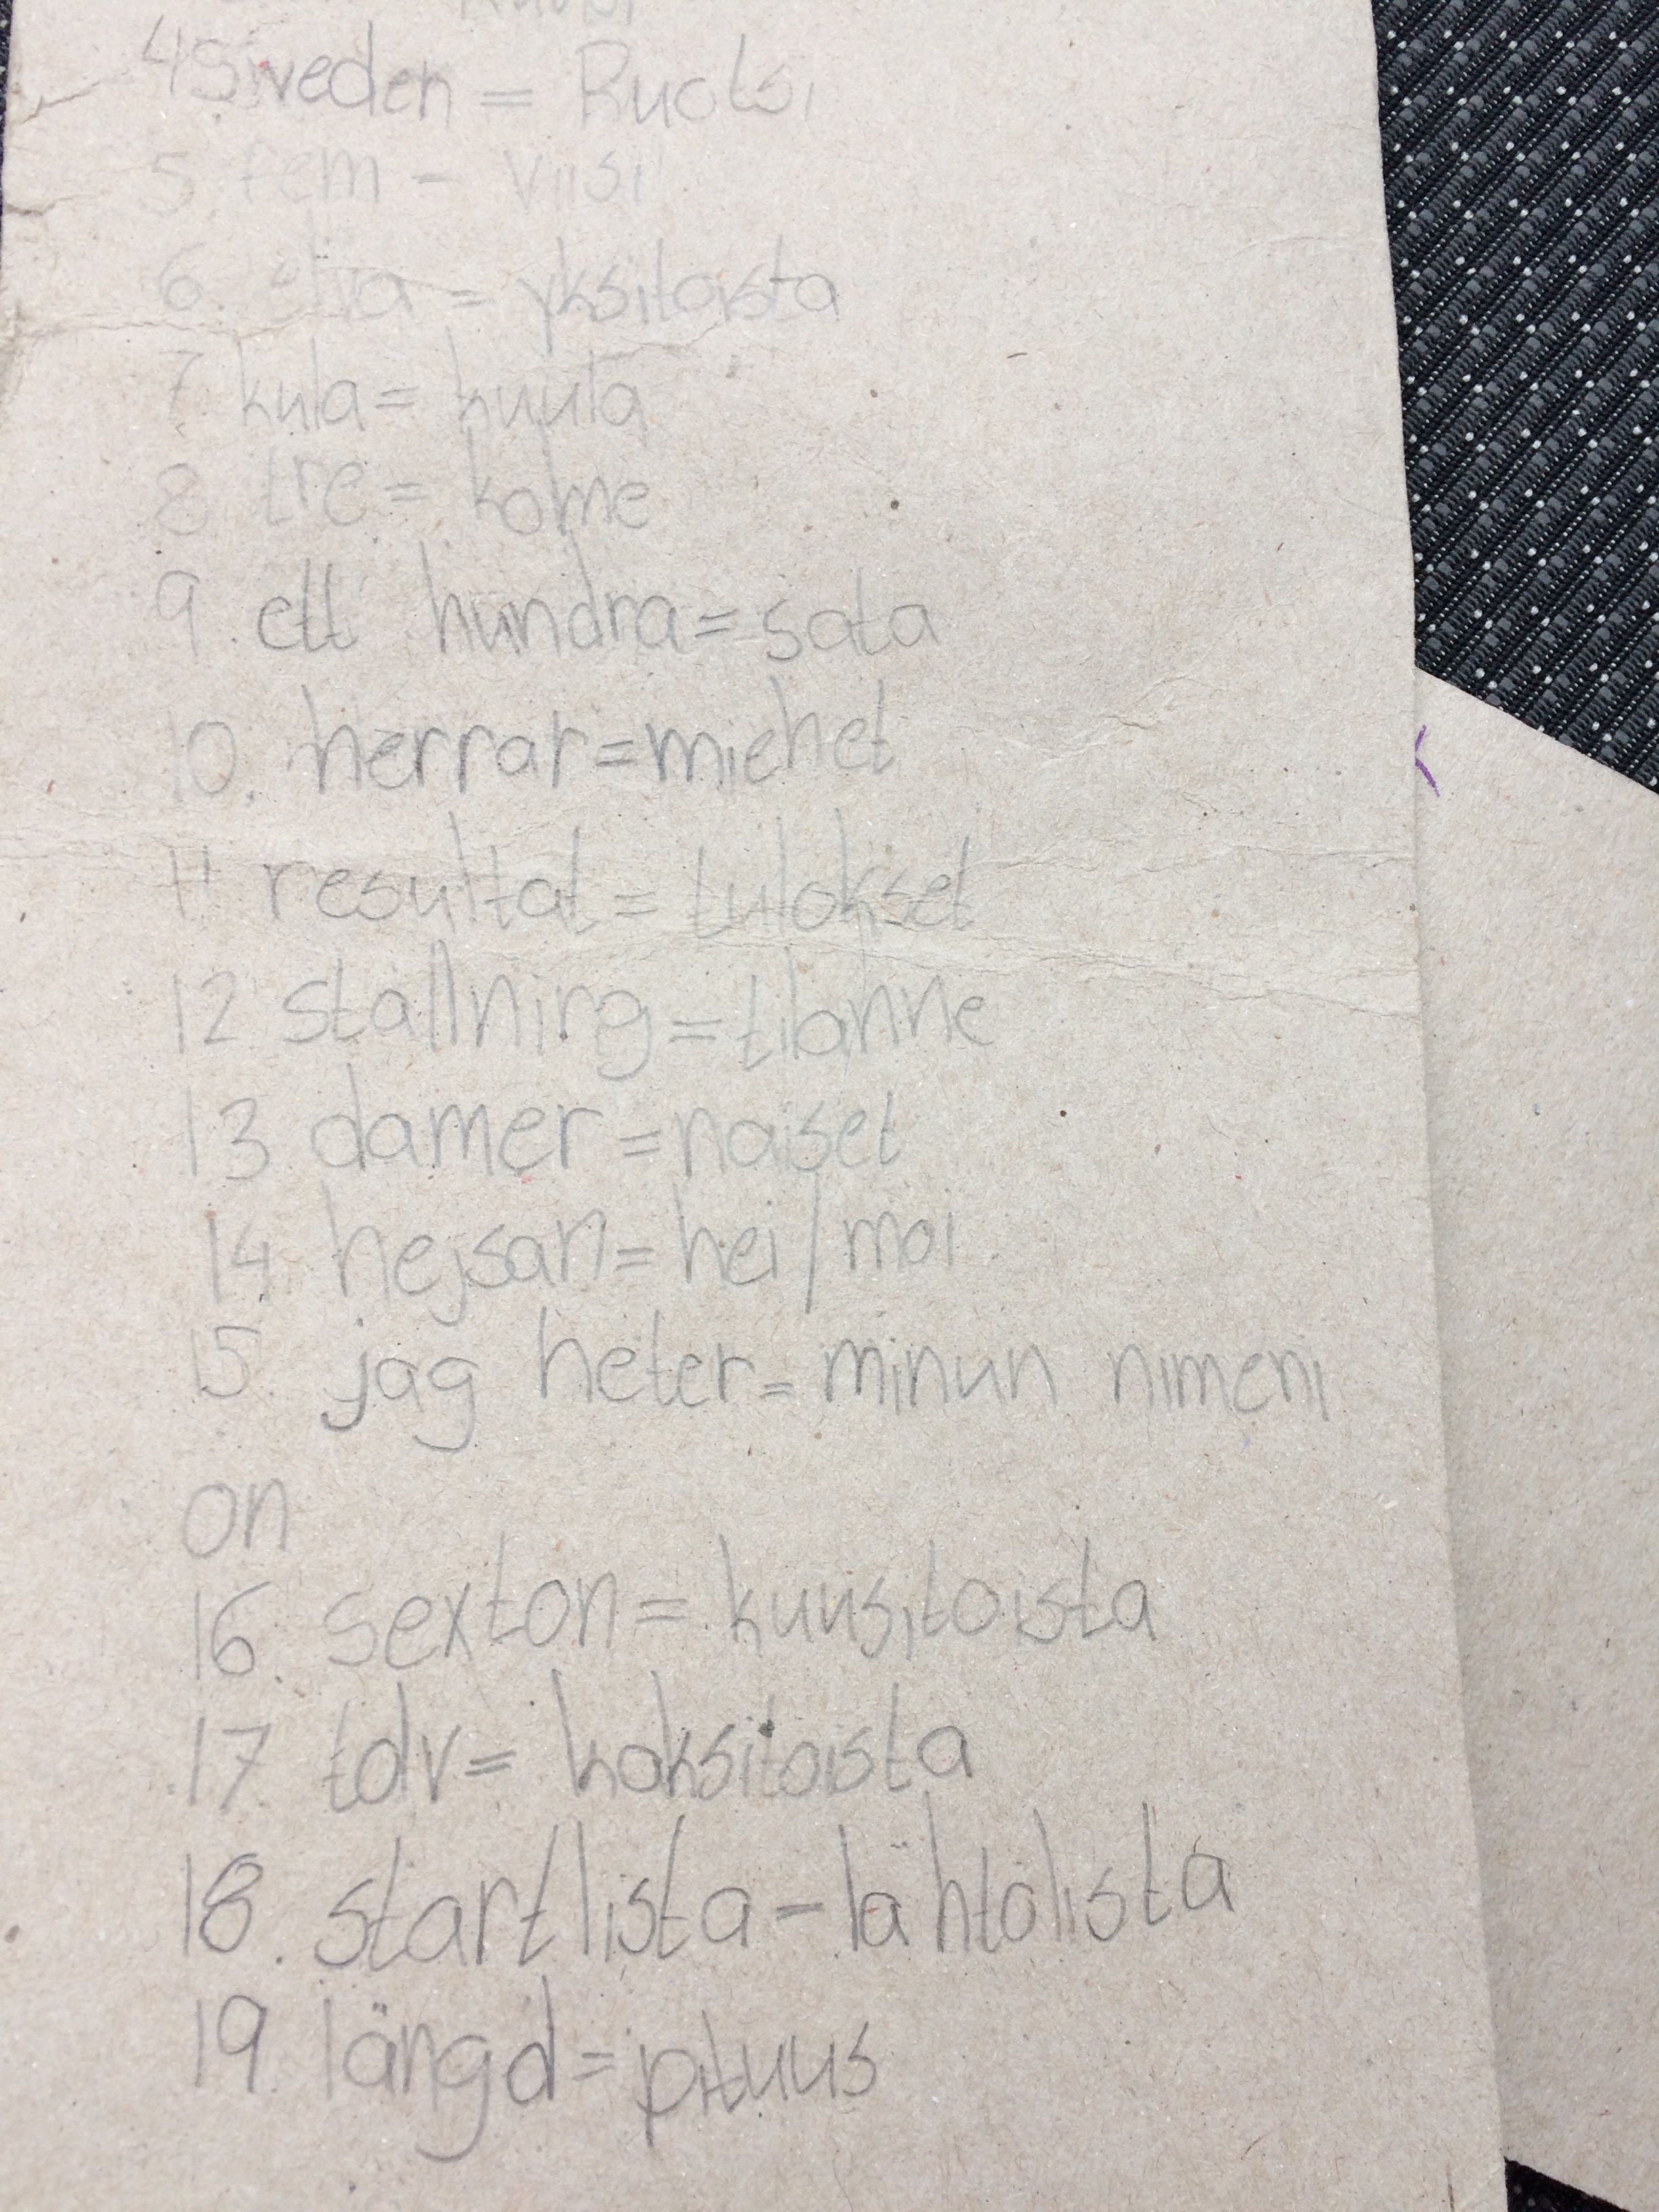 4 Sweden = Ruotsi
5. fem - viisi
6. elva = yksitoista
7. kula = kuula
8 tre = kolme
9. ett hundra = sata
10. herrar = miehet
11 resultat = tulokset
12 stallning = tilanne
13 damer = naiset
14 hejsan = hei/moi
15. jag heter = minun nimeni
on
16. sexton = kuusitoista
17. tolv = kaksitoista
18. startlista - lähtölista
19. längd = pituus